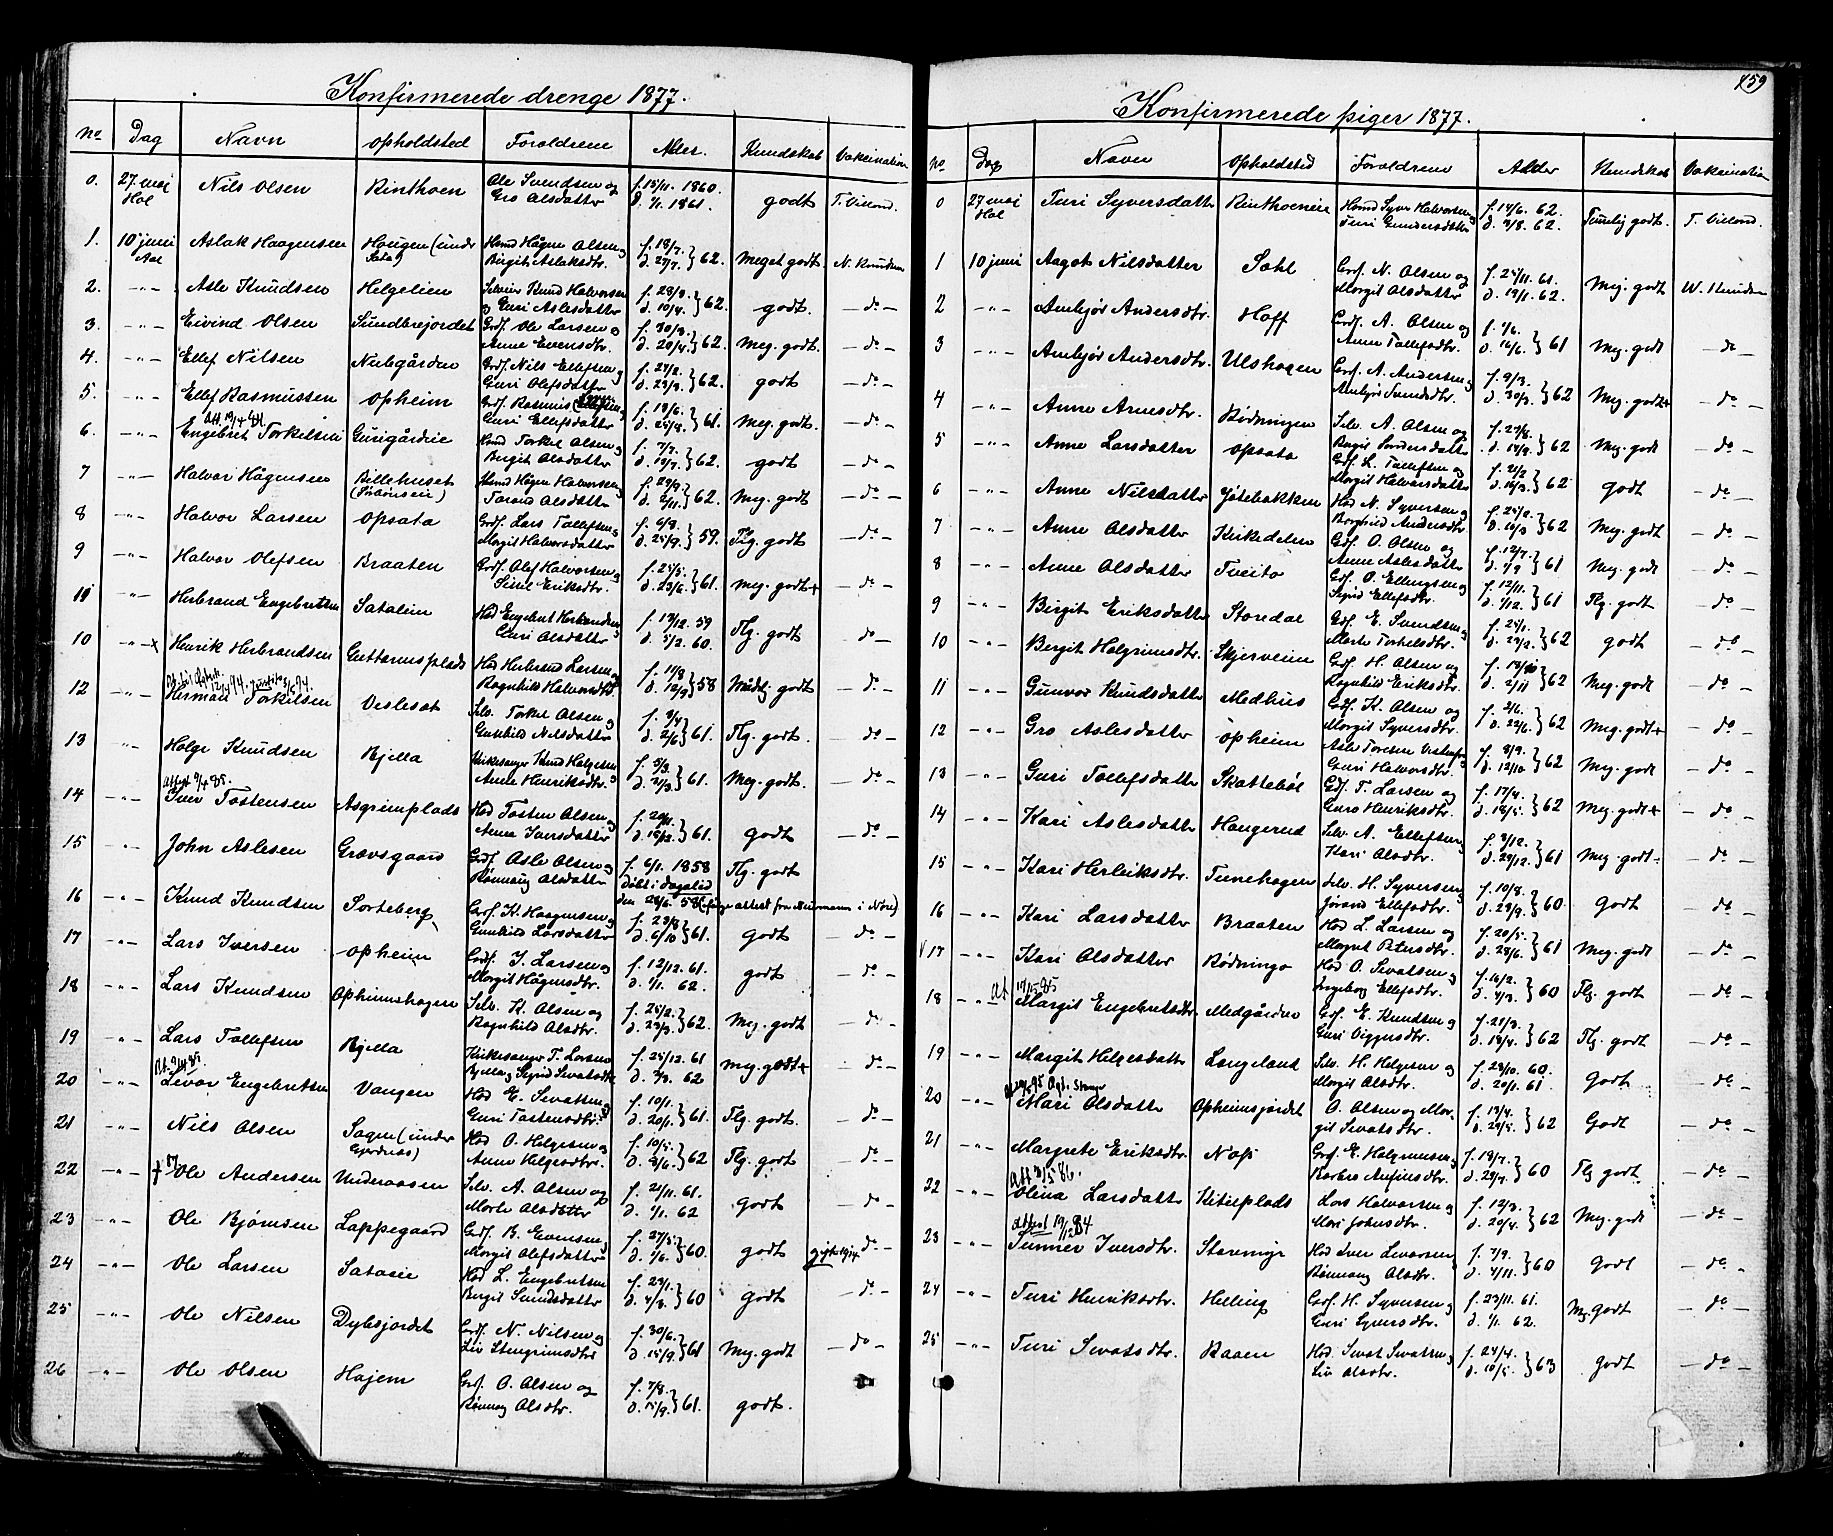 Konfirmerede drenge 1877.
No Dag Navn Opholdsted Foroldrene Alder. Kundskab Vakcination
0. 27. mai Hol Nils Olsen Rinthoen Ole Svendsen og Gro Alsdatter f. 15/11. 1860. d. 1/1. 1861. godt T. Villand.
1. 10 juni Aal Aslak Haagensen Haugen (under Sata) Huusm. Hågen Olsen og Birgit Aslaksdtr. f. 18/7. d. 27/7. } 62. Meget godt N. Knudsen
2. -"- Asle Knudsen Helgelien Selveier Knud Halvorsen og Guri Aslesdatter f. 28/3. d. 10/4. } 62. godt. - do -
3. -"- Eivind Olsen Sundbrejordet Grdf. Ole Larsen og Anne Evensdtr. f. 30/3. d. 20/4. } 62. Meg. godt. - do -
4. -"- Ellef Nilsen Nilsgården Grdf. Nils Ellefsen og Guri Olefsdatter f. 24/2. d. 23/3. } 62. godt - do -
5. -"- Ellef Rasmussen Opheim Grdf. Rasmus og Guri Ellefsdatter f. 18/6. d. 25/8. } 61. Meg. godt. - do -
6. -"- Att. 19/4 81. Engebret Torkelsen Gurigårdie Huusm. Torkel Olsen og Birgit Alsdatter f. 7/7. d. 19/7. } 62. godt - do -
7 -"- Halvor Hågensen Billehuset Hågen Halvorsen og Torand Alsdatter f. 29/9. d. 2/11. } 62. Meg. godt - do -
8 -"- Halvor Larsen Opsata Grdf. Lars Tollefsen og Margit Halvorsdatter f. 6/8. d. 25/9. } 59. Tlg. godt - do -
9 -"- Halvor Olefsen Braaten Grdf. Olef Halvorsen og Sinel Eriksdtr. f. 25/5. d. 23/6. } 61. Meg. godt+ - do -
11 -"- Herbrand Engebretsen Satalein Hsd Engebret Herbrandsen Guri Alsdatter f. 19/12. 59 d. 5/2. 60. Tlg. godt - do -
10 -"- x Henrik Herbrandsen Guttormsplads Hsd Herbrand Larsen og Ragnhild Halvorsdtr f. 11/8 d. 12/9 } 58 Mådelig godt - do -
12 -"- 12/4 94. Herman Torkilsen Veslesæt Selv. Torkel Olsen og Gunhild Nilsdatter f. 3/4 d. 2/6 } 61. Tlg. godt. - do -
13 -"- Holge Knudsen Bjella Kirkesanger Knud Helgesen Anne Henriksdtr. f. 5/3. d. 24/3. } 61. Meg. godt. - do -
14 -"- Attest 9/4 85. Iver Tostensen Asgrimplads Hsd Tosten Olsen og Anne Iversdatter f. 20/1. d. 15/2. } 61. godt - do -
15 -"- John Aslesen Grøvsgaard Grdf. Asle Olsen og Rønnaug Alsdatter f. 6/1. 1858 Døbt i Dagalid den 24/6. 58 (ifølge attest fra Neumann i Nore) Tlg. godt
16 -"- Knud Knudsen Sorteberg Grdf. K. Haagensen og Gunhild Larsdatter f. 23/8 d. 6/10 } 61. godt - do -
17 -"- Lars Iversen Opheim Grdf. I. Larsen og Margit Hågensdtr. f. 12/12. 61. d. 1/1. 62. godt - do -
18 -"- Lars Knudsen Opheimshagen Selv. K. Olsen og Ragnhild Alsdtr. f. 24/2. d. 23/3. } 62. Meg. godt - do -
19 -"- Lars Tollefsen Bjella Kirkesanger T. Larsen Bjella og Sigrid Sevatsdtr f. 25/12. 61 d. 2/3. 62 Meg. godt+ - do -
20 -"- Levor Engebretsen Vangen Hsd E. Sevatsen og Guri Tostensdtr. f. 10/1. d. 20/1. } 61. Tlg. godt. - do -
21 -"- Nils Olsen Sagen (under Gjerdnæs) Hsd O. Helgesen og Anne Helgesdtr. f. 10/5. d. 3/6. } 62 Tlg. godt - do -
22 -"- Ole Andersen Underaasen Selv. A. Olsen og Marte Alsdatter f. 21/11. 61. d. 1/1. 62 godt - do -
23 -"- Ole Bjørnsen Lappegaard Grdf. B. Evensen og Margit Olefsdatter f. 27/5. d. 1/6. } 60. godt - do -
24 -"- Ole Larsen Satasie Hsd L. Engebretsen Birgit Sundsdatter f. 23/1. d. 4/3. } 60 godt - do -
25 -"- Ole Nilsen Dybsjordet Grdf. N. Nilsen og Liv Stengrimsdtr f. 30/6. d. 15/9. } 61 Meg. godt - do -
26 -"- Ole Olsen Hajem Grdf. O. Olsen og Rønnaug Alsdtr. f. 7/8. d. 15/9. } 61. godt.
159
Konfirmerede piger 1877.
No Dag Navn Opholdsted Foroldrene Alder Kundskab Vakcination
0 27 mai Hol Turi Syversdatter Rinthoeneie Huusmd Syver Halvorsen og Turi Gundersdatter f. 14/6. 62. d. 3/8. 62. Temelig godt. T. Villand.
1 10 juni Aagot Nilsdatter Sohl Grdf. N. Olsen og Margit Alsdatter f. 25/11. 61. d. 19/1. 62. Meg. godt N. Knudsen
2 -"- Ambjør Andersdtr. Hoff Grdf. A. Olsen og Anne Tollefsdtr. f. 1/6. d. 16/6. } 61 Meg. godt - do -
3 -"- Ambjør Andersdtr. Ulshagen Grdf. A. Andersen og Ambjør Svensdtr. f. 9/3. d. 30/3. } 62 Meg. godt+ - do -
4 -"- Anne Arnesdtr. Rødningen Selv. A. Olsen og Bagit f. 27/8. d. 14/9. } 62 Meg. godt - do -
5 -"- Anne Larsdatter Opsata Grdf. L. Tollefsen og Margit Halvorsdatter f. 21/2. d. 16/3. } 62 godt - do -
6 -"- Anne Nilsdatter Jøtebakken Hsd N. Syversen og Borghild Andersdtr. f. 24/2. d. 10/3 } 62 Meg. godt - do -
7 -"- Anne Olsdatter Kirkedelen Grdf. O. Olsen og Anne Aslesdatter f. 12/7. d. 1/9 } 61 Meg. godt - do -
8 -"- Anne Olsdatter Tveito Grdf. O. Ellingsen og Sigrid Ellefsdtr. f. 12/11. d. 1/12. } 61 Tlg. godt - do -
9 -"- Birgit Eriksdatter Stordal Grdf. E. Svendsen og Marte Torkelsdtr. f. 25/1. d. 23/2. } 62 godt - do -
10 -"- Birgit Holgrimsdtr. Skjerveim Grdf. H. Olsen og Ragnhild Eriksdtr. f. 13/10 d. 2/11 } 62 Meg. godt - do -
11 -"- Gunvor Knudsdatter Medhus Grdf. K. Olsen og Margit Syversdtr. f. 2/6. d. 22/6. } 62 Meg. godt+ - do -
12 -"- Gro Aslesdatter Opheim Asle Torstsen og Guri Halvorsdtr. f. 8/9. d. 12/10 } 62 Meg. godt - do -
13 -"- Guri Tollefsdatter Skattebøl Grdf. T. Larsen og Guro Henriksdtr. f. 17/4. d. 18/5. } 62 Meg. godt+ - do -
14 -"- Kari Aslesdatter Haugerud Selv. A. Ellefsen og Kari Alsdtr. f. 3/12. d. 29/12. } 61 Meg. godt - do -
15 -"- Kari Herleiksdtr. Tunehagen Selv. H. Syversen og Jørand Ellefsdtr. f. 10/8. d. 23/9. } 60 Godt - do -
16 -"- Kari Larsdatter Braaten Hsd L. Larsen og Margit Petersdtr. f. 20/5. d. 28/6. } 61 Meg. godt - do -
17 -"- Kari Olsdatter Rødningo Hsd O. Sevatsen og Ingeborg Ellefsdtr. f. 16/2. d. 4/3. } 60 Tlg. godt - do -
18 -"- Att 19/5 85 Margit Engebretsdtr Medgården Grdf. E. Knudsen og Guri Viggensdtr. f. 21/3. d. 18/4. } 62 Tlg. godt - do -
19 -"- Margit Helgesdatter Langeland Selv. H. Helgesen og Margit Alsdtr. f. 23/10. 60. d. 20/1. 61. Godt - do -
20 -"- Mari Olsdatter Opheimsjordet O. Olsen og Margit Sevatsdtr. f. 13/4. d. 29/5. } 62 Godt - do -
21 -"- Margrete Eriksdtr. Næs Grdf. E. Helgrimsen og Barbro Aufinsdtr. f. 18/7. d. 29/7. } 60 Tlg godt - do -
22 -"- Att 3/5 86. Olina Larsdatter Kitilplads Lars Halvorsen og Mari Johnsdtr. f. 12/3. d. 20/4. } 62 Meg. godt - do -
23 -"- Attest 19/12 84 Sunnev Iversdtr. Stavemyr Hsd Iver Levorsen Rønnaug Alsdtr. f. 7/9. d. 4/11. } 60 Godt - do -
24 -"- Turi Henriksdtr. Helling Grdf. H. Syversen og Guri Syversdtr. f. 23/11. 61. d. 1/1. 62. Mg. godt - do -
25 -"- Turi Sevatsdtr. Raaen Hsd. Sevat Sevatsen og Liv Alsdtr. f. 24/4. d. 10/5. } 63 godt - do -